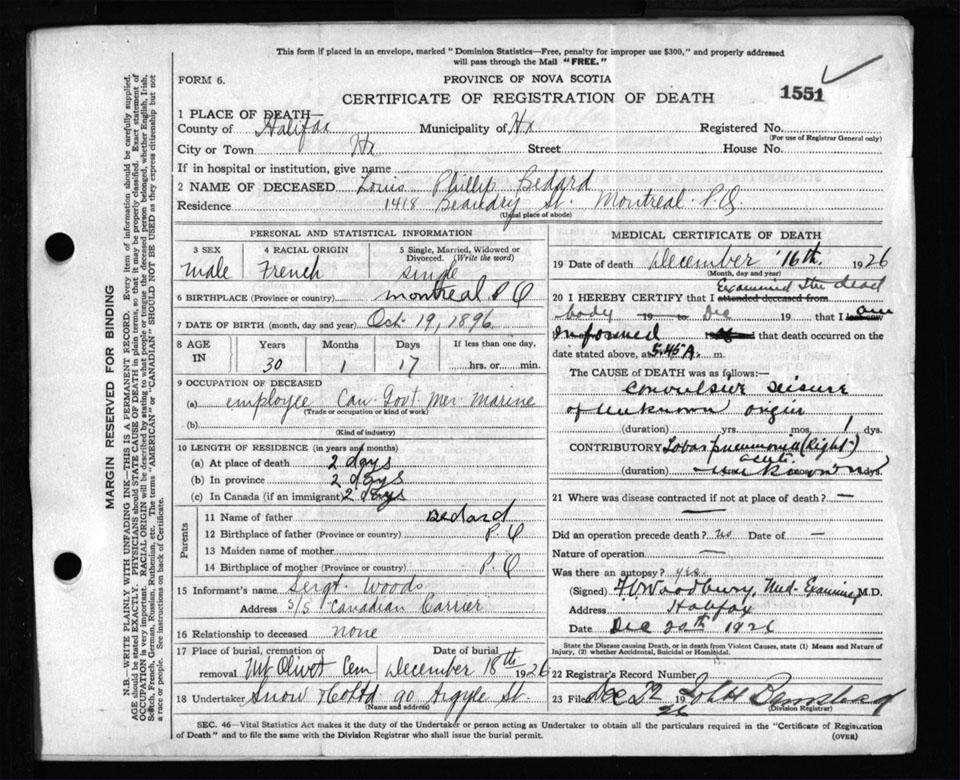 This form if placed in an envelope, marked "Dominion Statistics—Free, penalty for improper use $300," and properly addressed
will pass through the Mail "FREE."
FORM 6.
PROVINCE OF NOVA SCOTIA
CERTIFICATE OF REGISTRATION OF DEATH
1551
1 PLACE OF DEATH—
County of Halifax Municipality of Hx Registered No.
(For use of Registrar General only)
City or Town Hx Street House No.
If in hospital or institution, give name
2 NAME OF DECEASED Louis Phillip Bedard
Residence 1418 Beaudry St. Montreal P.Q.
(Usual place of abode)
PERSONAL AND STATISTICAL INFORMATION
3 SEX
Male
4 RACIAL ORIGIN
French
5 Single, Married, Widowed or
Divorced. (Write the word)
single
6 BIRTHPLACE (Province or country) Montreal P Q
7 DATE OF BIRTH (month, day and year) Oct. 19, 1896
8 AGE
IN
Years Months Days If less than one day,
30 1 17 hrs. or min.
9 OCCUPATION OF DECEASED
(a) employee Can. Govt. Mer Marine
(Trade or occupation or kind of work)
(b)
(Kind of industry)
10 LENGTH OF RESIDENCE (in years and months)
(a) At place of death 2 days
(b) In province 2 days
(c) In Canada (if an immigrant) 2 days
Parents
11 Name of father Bedard
12 Birthplace of father (Province or country) P. Q
13 Maiden name of mother
14 Birthplace of mother (Province or country) P. Q
15 Informant's name Sergt. Woods
Address S/S Canadian Carrier
16 Relationship to deceased none
17 Place of burial, cremation or removal Mt Olivet Cem
Date of burial
December 18th 1926
18 Undertaker Snow & Co Ltd 90 Argyle St.
(Name and address)
MEDICAL CERTIFICATE OF DEATH
19 Date of death December 16th. 1926
(Month, day and year)
Examined the dead
20 I HEREBY CERTIFY that I attended deceased from
body 19 to Dec 19 that I am
informed that death occurred on the
date stated above, at 5.45 A. m.
The CAUSE OF DEATH was as follows:—
Convulsive seisure
of unknown origin
(duration) yrs. mos. 1 dys.
CONTRIBUTORY Lobar pneumonia (Right)
acute
(duration) unknown dys.
21 Where was disease contracted if not at place of death? —
—
Did an operation precede death? no Date of —
Nature of operation —
Was there an autopsy? yes.
(Signed) Woodbury, Med. Examiner M.D.
Address Halifax
Date Dec 20th 1926
State the Disease causing Death, or in death from Violent Causes, state (1) Means and Nature of
Injury, (2) whether Accidental, Suicidal or Homicidal.
22 Registrar's Record Number
23 Filed Dec 22
26
(Division Registrar)
SEC. 46—Vital Statistics Act makes it the duty of the Undertaker or person acting as Undertaker to obtain all the particulars required in the "Certificate of Registration
of Death" and to file the same with the Division Registrar who shall issue the burial permit.
(OVER)
MARGIN RESERVED FOR BINDING
N.B.—WRITE PLAINLY WITH UNFADING INK—THIS IS A PERMANENT RECORD. Every item of information should be carefully supplied.
AGE should be stated EXACTLY. PHYSICIANS should STATE CAUSE OF DEATH in plain terms, so that it may be properly classified. Exact statement of
OCCUPATION is very important. RACIAL ORIGIN will be described by stating to what people or tongue the deceased person belonged, whether English, Irish,
Scotch, French, German, Russian, Ruthenian, etc. The terms "AMERICAN" or "CANADIAN" SHOULD NOT BE USED as they express citizenship but not
a race or people. See instructions on back of Certificate.